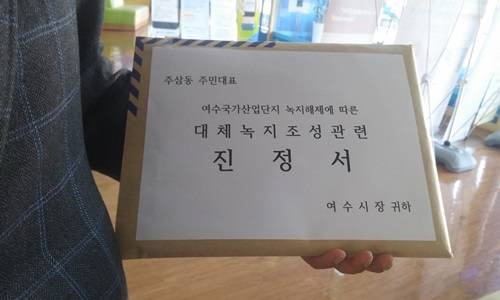 주삼동 주민대표
여수국가산업단지 녹지해제에 따른
대체녹지조성관련
진정서
여수시장귀하